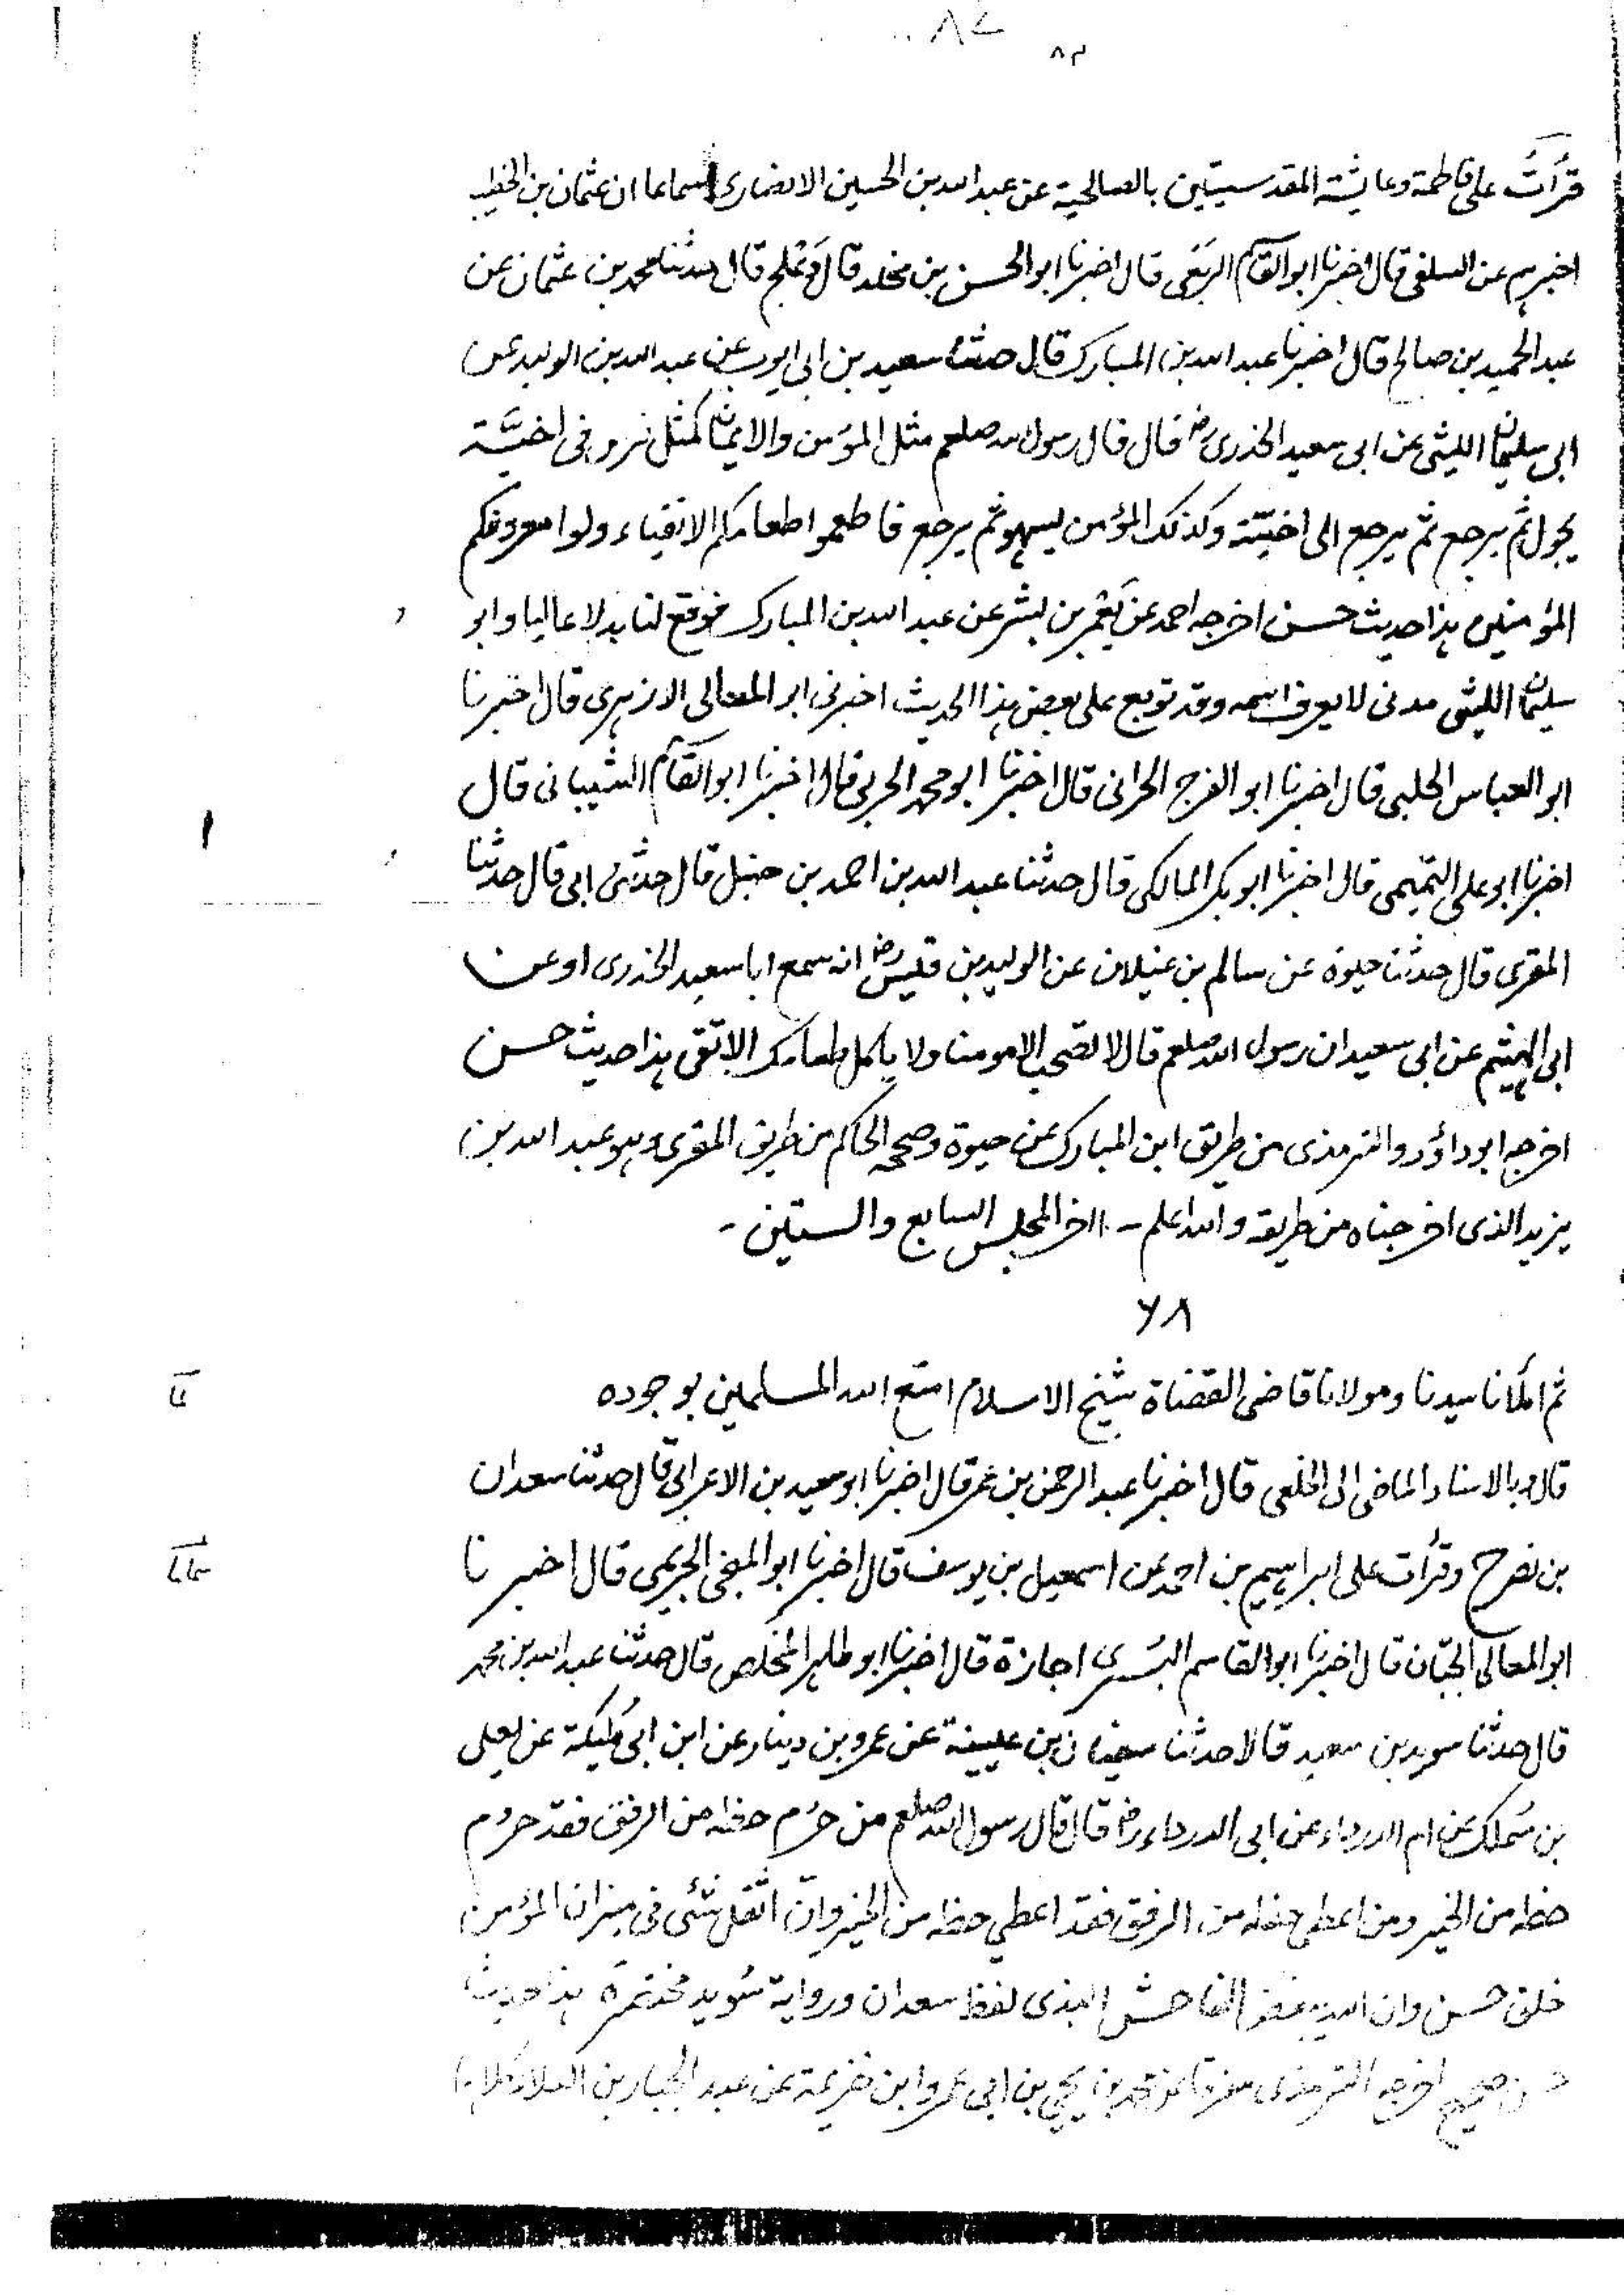 ٨٧
٨٣
قرأت على فاطمة وعايشة المقدسيتين بالصالحية عن عبد الله بن الحسين الانصارى سماعا ان عثمان بن الخطيب
اخبرهم عن السلفى قال اخبرنا ابو القاسم الربعى قال اخبرنا ابو الحسن بن مخلد قال دعلج قال حدثنا محمد بن عثمان عن
عبد الحميد بن صالح قال اخبرنا عبد الله بن المبارك قال حدثنا سعيد بن ابى ايوب عن عبد الله بن الوليد عن
ابى سليمان الليثى عن ابى سعيد الخدرى رض قال قال رسول الله صلعم مثل المؤمن والايمان كمثل فرو فى اخيّة
يجول ثم يرجع ثم يرجع الى اخيّته وكذلك المؤمن يسهو ثم يرجع فاطعموا طعامكم الاتقياء ولوا معروفكم
المؤمنين هذا حديث حسن اخرجه احمد عن يَعْمر بن بشر عن عبد الله بن المبارك فوقع لنا بدلا عاليا وابو
سليمان الليثى مدنى لا يعرف اسمه وقد توبع على بعض هذا الحديث اخبرنى ابو المعالى الازهرى قال اخبرنا
ابو العباس الحلبى قال اخبرنا ابو الفرج الحرانى قال اخبرنا ابو محمد الحربى قال اخبرنا ابو القاسم الشيبانى قال
اخبرنا ابو على التميمى قال اخبرنا ابو بكر المالكى قال حدثنا عبد الله بن احمد بن حنبل قال حدثنى ابى قال حدثنا
المقرى قال حدثنا حيوة عن سالم بن غيلان عن الوليد بن قيس رض انه سمع ابا سعيد الخدرى او عن
ابى الهيثم عن ابى سعيد ان رسول الله صلعم قال لا تصحب الا مومنا ولا ياكل طعامك الا تقى هذا حديث حسن
اخرجه ابو داؤد والترمذى من طريق ابن المبارك عن حيوة وصححه الحاكم من طريق المقرى وهو عبد الله بن
يزيد الذى اخرجناه من طريقه والله اعلم - اخر المجلس السابع والستين -
٦٨
ثم املأنا سيدنا ومولانا قاضى القضاة شيخ الاسلام امتع الله المسلمين بوجوده
قال وبالاسناد الماضى الى الخلعى قال اخبرنا عبد الرحمن بن عمر قال اخبرنا ابو سعيد بن الاعرابى قال حدثنا سعدان
بن نصر ح وقرأت على ابراهيم بن احمد عن اسمعيل بن يوسف قال اخبرنا ابو المنجى الحريمى قال اخبرنا
ابو المعالى الجبّان قال اخبرنا ابو القاسم البُسْرى اجازة قال اخبرنا ابو طاهر المخلص قال حدثنا عبد الله بن محمد
قال حدثنا سويد بن سعيد قالا حدثنا سفيان بن عيينة عن عمرو بن دينار عن ابن ابى مُليكة عن يعلى
بن مُملك عن ام الدرداء عن ابى الدرداء رض قال قال رسول الله صلعم من حُرم حظه من الرفق فقد حرم
حظه من الخير ومن اعطى حظه من الرفق فقد اعطى حظه من الخير وانّ اثقل شئى فى ميزان المؤمن
خلق حسن وان الله يبغض الفاحش البذى لفظ سعدان ورواية سُويد مختصرة هذا حديث
حسن صحيح اخرجه الترمذى مفرقا عن محمد بن يحيى بن ابى عمر وابن خزيمة عن عبد الجبار بن العلاء كلاهما